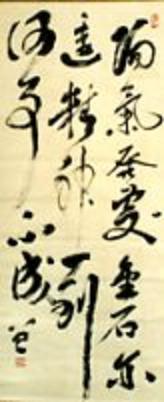 陽氣發處金石亦
透精神一到
何事不成